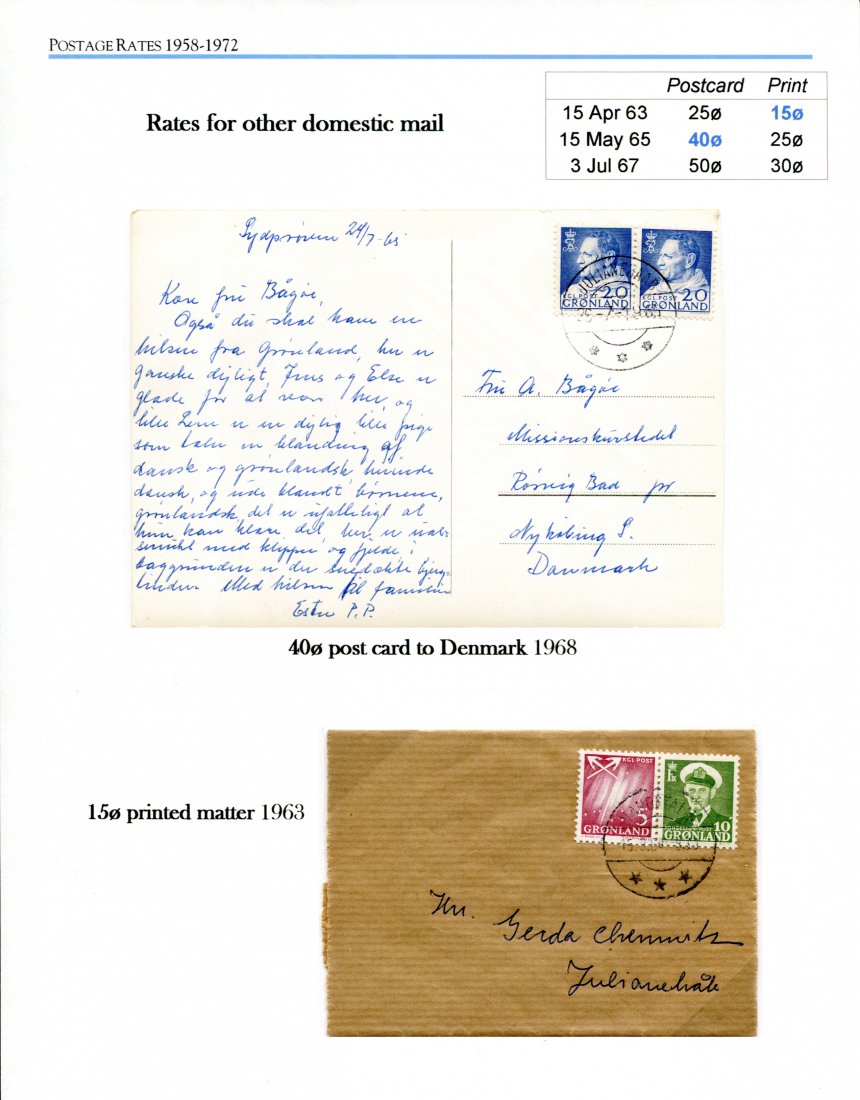 POSTAGE RATES 1958-1972
Rates for other domestic mail
Postcard Print
15 Apr 63 25ø 15ø
15 May 65 40ø 25ø
3 Jul 67 50ø 30ø
Sydprøven 24/7-65
Kære fru Bågøe,
Også du skal have en
hilsen fra Grønland, her er
ganske dejligt, Jens og Else er
glade for at være her, og
lille Lene er en dejlig lille pige
som taler en blanding af
dansk og grønlandsk, hjemme
dansk, og ude blandt børnene,
grønlandsk, det er ufatteligt at
hun kan klare det, her er
med klipper og fjelde i
baggrunden er de snedækte bjerg
tinder Med hilsen til familien
Ester P.P.
KGL POST 20 KGL POST 20
GRØNLAND GRØNLAND
JULIANEHÅB
Fru A. Bågøe
Missionskurstedet
Rørvig Bad pr
Nykøbing S.
Danmark
40ø post card to Denmark 1968
15ø printed matter 1963
KGL-POST
5 10
GRØNLAND GRØNLAND
Hr. Gerda Chemnitz
Julianehåb